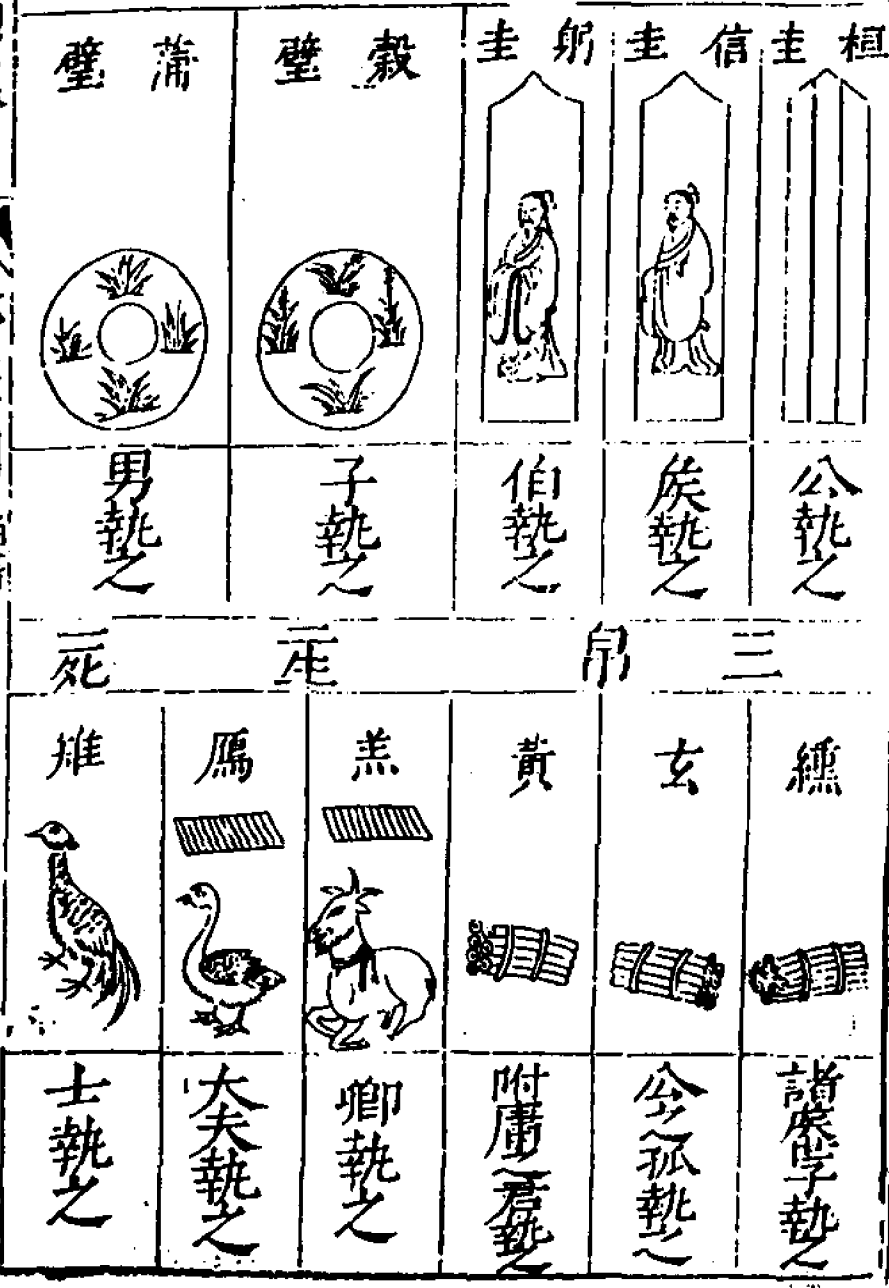 桓圭
信圭
躬圭
穀璧
蒲璧
公執之
矦執之
伯執之
子執之
男執之
三帛
二生
一死
纁
玄
黃
羔
鴈
雉
諸矦世子執之
公之孤執之
附庸之君執之
卿執之
大夫執之
士執之